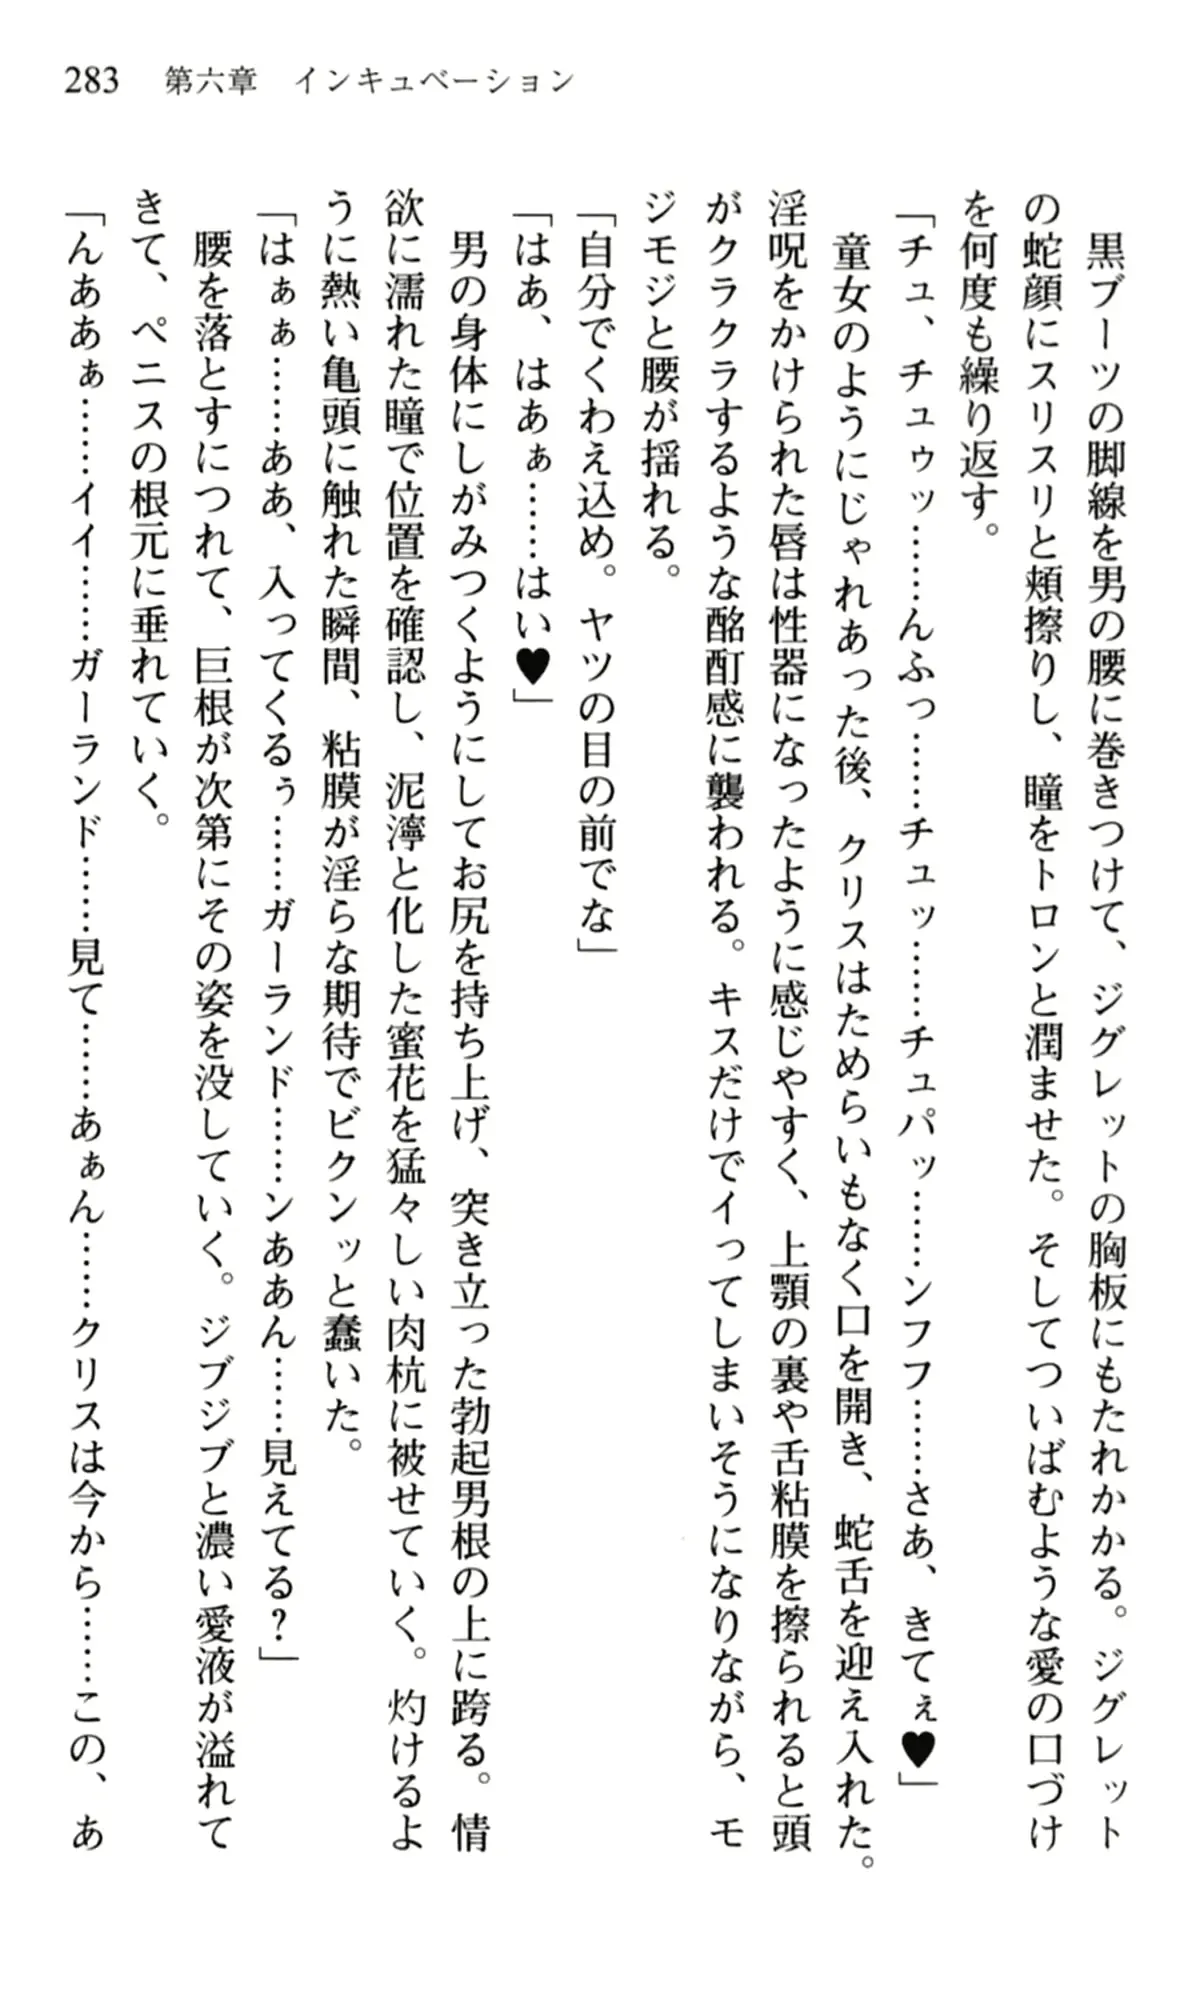 283 第六章 インキュベーション
黒ブーツの脚線を男の腰に巻きつけて、ジグレットの胸板にもたれかかる。ジグレット
の蛇顔にスリスリと頬擦りし、瞳をトロンと潤ませた。そしてついばむような愛の口づけ
を何度も繰り返す。
「チュ、チュゥッ……んふっ……チュッ……チュパッ……ンフフ……さあ、きてぇ♥」
童女のようにじゃれあった後、クリスはためらいもなく口を開き、蛇舌を迎え入れた。
淫呪をかけられた唇は性器になったように感じやすく、上顎の裏や舌粘膜を擦られると頭
がクラクラするような酩酊感に襲われる。キスだけでイってしまいそうになりながら、モ
ジモジと腰が揺れる。
「自分でくわえ込め。ヤツの目の前でな」
「はあ、はあぁ……はい♥」
男の身体にしがみつくようにしてお尻を持ち上げ、突き立った勃起男根の上に跨る。情
欲に濡れた瞳で位置を確認し、泥濘と化した蜜花を猛々しい肉杭に被せていく。灼けるよ
うに熱い亀頭に触れた瞬間、粘膜が淫らな期待でビクンッと蠢いた。
「はぁぁ……ああ、入ってくるぅ……ガーランド……ンああん……見えてる?」
腰を落とすにつれて、巨根が次第にその姿を没していく。ジブジブと濃い愛液が溢れて
きて、ペニスの根元に垂れていく。
「んああぁ……イイ……ガーランド……見て……あぁん……クリスは今から……この、あ